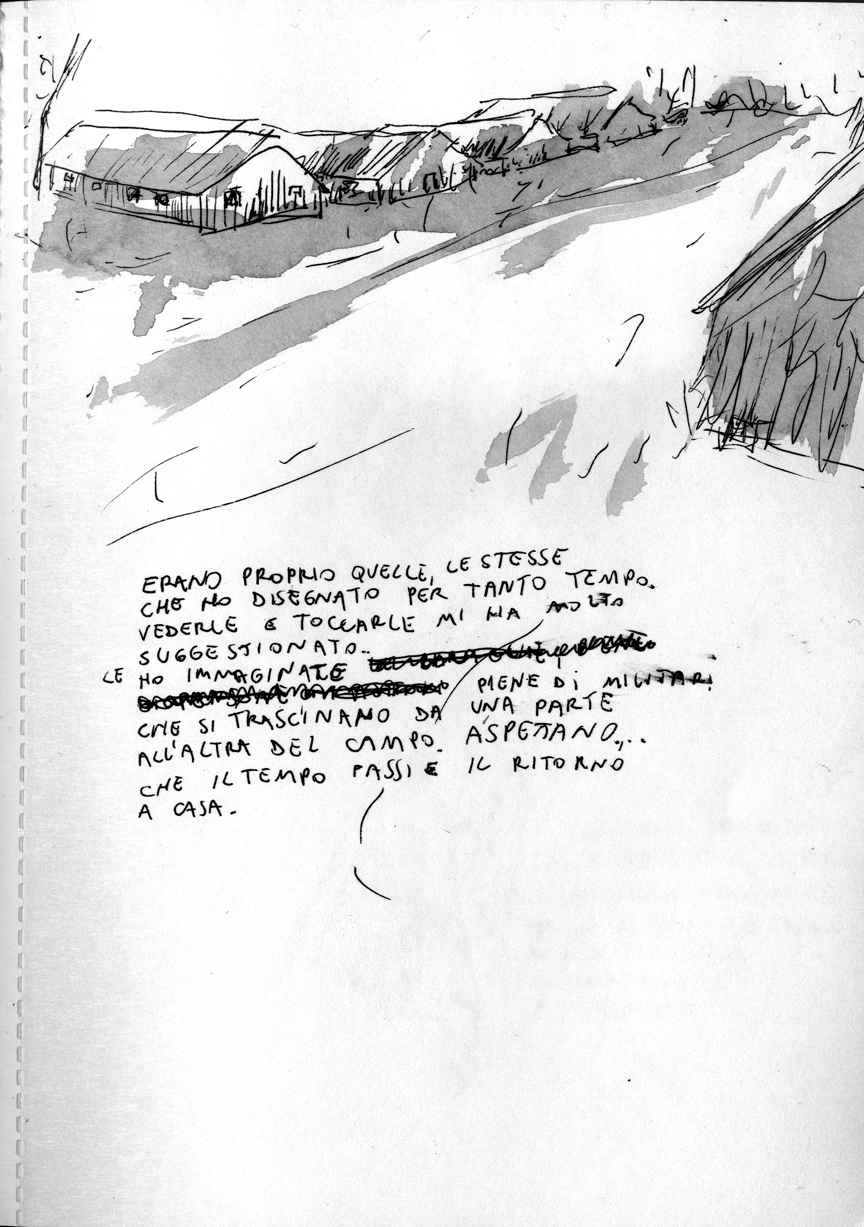 ERANO PROPRIO QUELLE, LE STESSE
CHE HO DISEGNATO PER TANTO TEMPO.
VEDERLE E TOCCARLE MI HA MOLTO
SUGGESTIONATO..
LE HO IMMAGINATE
PIENE DI MILITARI
CHE SI TRASCINANO DA UNA PARTE
ALL'ALTRA DEL CAMPO. ASPETTANO,..
CHE IL TEMPO PASSI E IL RITORNO
A CASA.